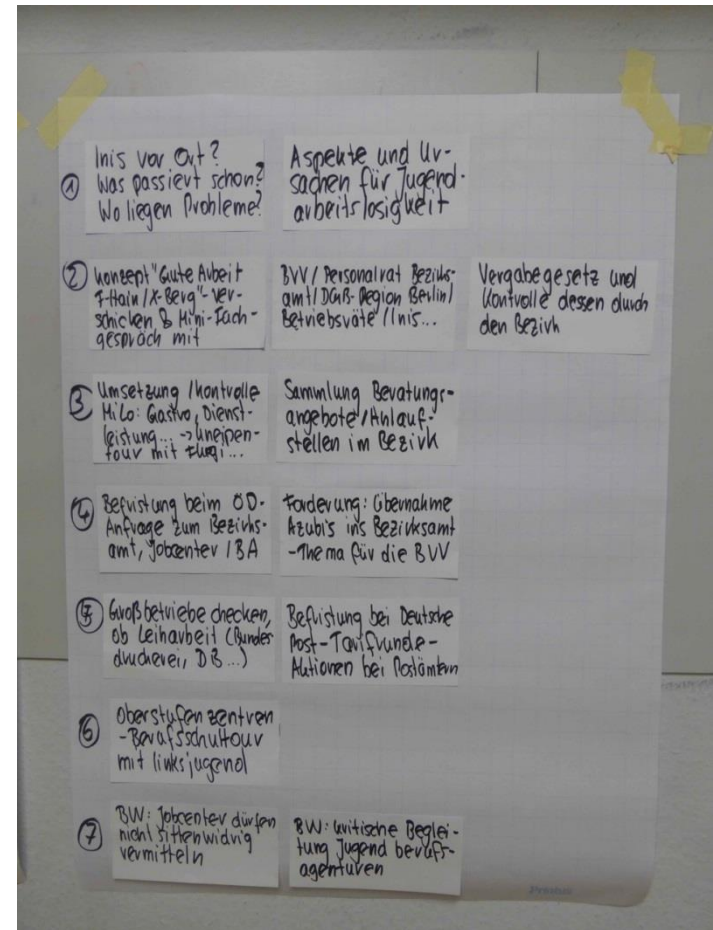 ①
Inis vor Ort?
Was passiert schon?
Wo liegen Probleme?
Aspekte und Ur-
sachen für Jugend-
arbeitslosigkeit
②
Konzept "Gute Arbeit
F-Hain/X-Berg"-ver-
schicken & Mini-Fach-
gespräch mit
BVV/Personalrat Bezirks-
amt/DGB-Region Berlin/
Betriebsräte/Inis...
Vergabegesetz und
Kontrolle dessen durch
den Bezirk
③
Umsetzung/Kontrolle
MiLo: Gastro, Dienst-
leistung... -> Kneipen-
tour mit Flugi...
Sammlung Beratungs-
angebote/Anlauf-
stellen im Bezirk
④
Befristung beim ÖD-
Anfrage zum Bezirks-
amt, Jobcenter/BA
Forderung: Übernahme
Azubis ins Bezirksamt
-Thema für die BVV
⑤
Großbetriebe checken,
ob Leiharbeit (Bundes
druckerei, DB...)
Befristung bei Deutsche
Post-Tarifrunde-
Aktionen bei Postämtern
⑥
Oberstufenzentren
-Berufsschultour
mit linksjugend
⑦
BW: Jobcenter dürfen
nicht sittenwidrig
vermitteln
BW: kritische Beglei-
tung Jugend berufs-
agenturen